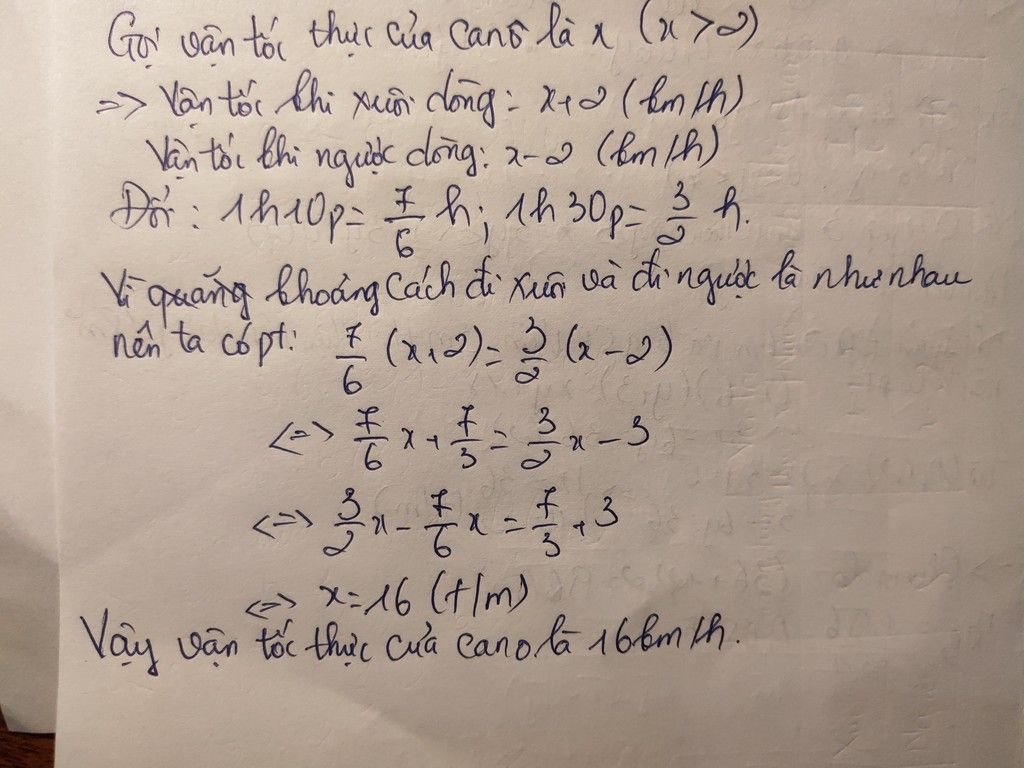 Gọi vận tốc thực của canô là x (x>2)
=> Vận tốc khi xuôi dòng: x+2 (km/h)
Vận tốc khi ngược dòng: x-2 (km/h)
Đổi: 1h10p = 7/6 h; 1h30p = 3/2 h.
Vì quãng khoảng cách đi xuôi và đi ngược là như nhau
nên ta có pt: 7/6 (x+2) = 3/2 (x-2)
<=> 7/6 x + 7/3 = 3/2 x - 3
<=> 3/2 x - 7/6 x = 7/3 + 3
<=> x=16 (t/m)
Vậy vận tốc thực của cano là 16km/h.